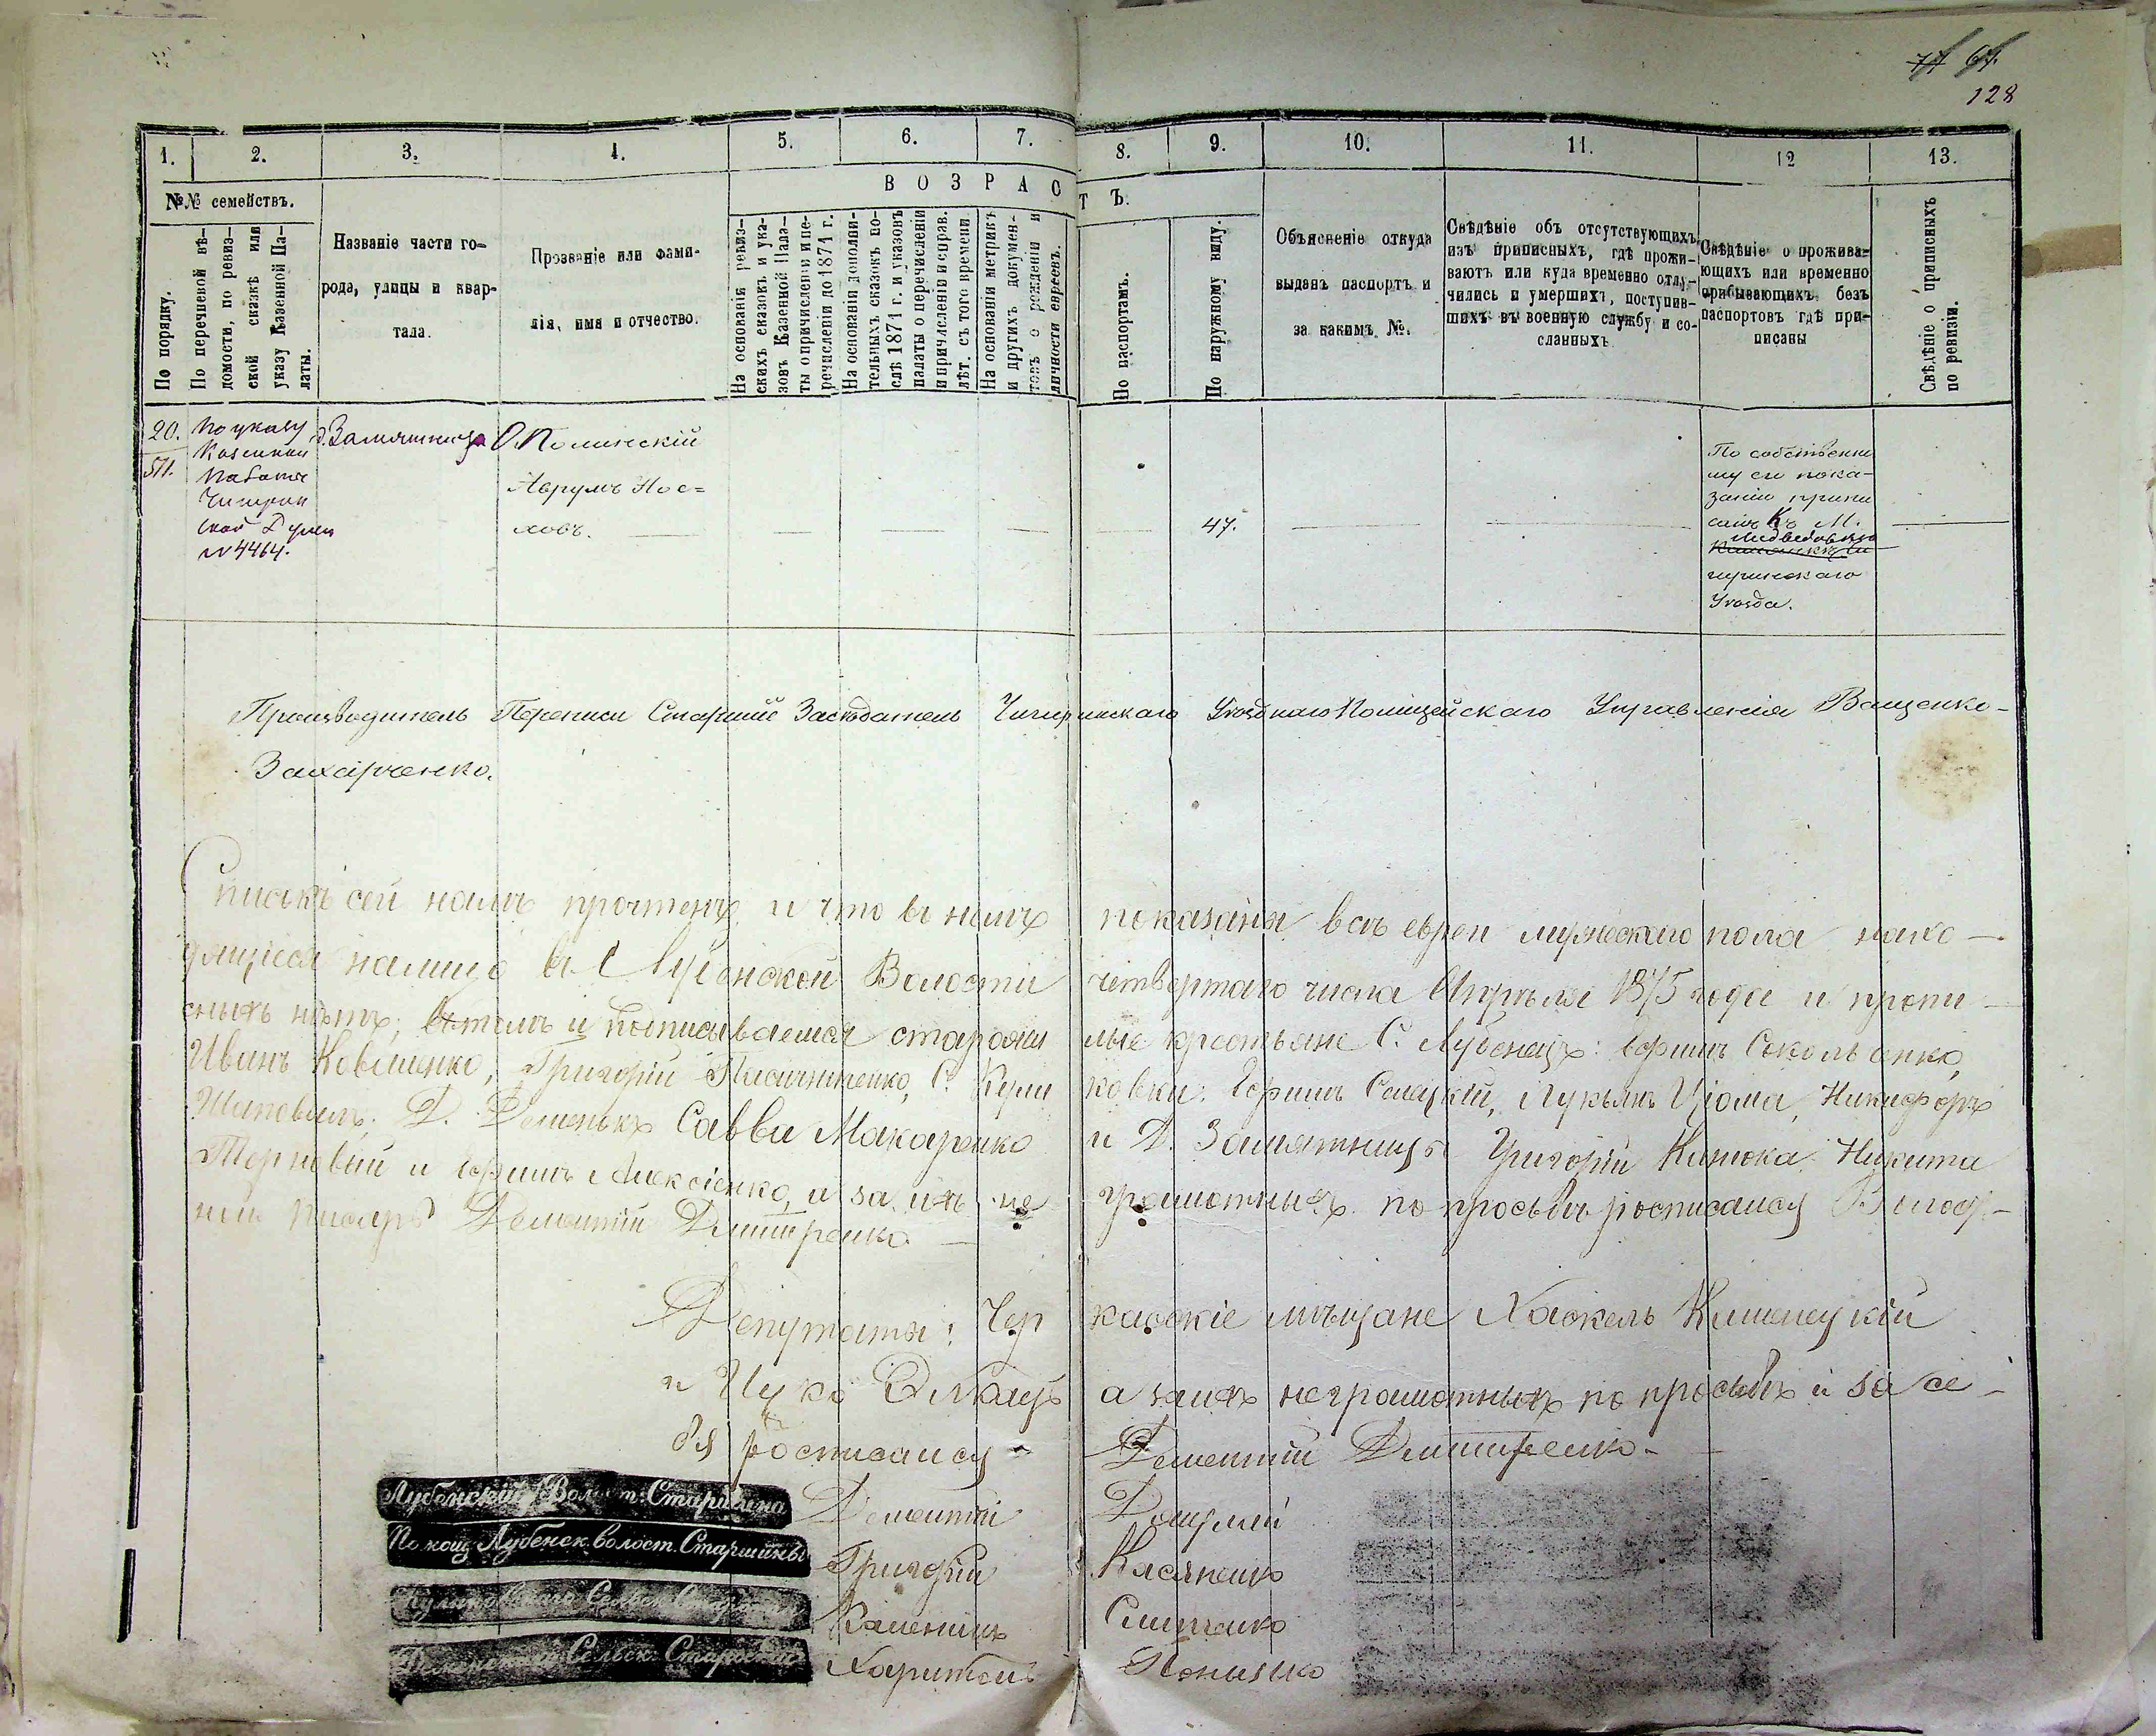 71 64.
128
1. 2. 3. 4. 5. 6. 7. 8. 9. 10. 11. 12 13.
№№ семействъ.
ВОЗРАСТЪ.
По порядку.
По перечневой вѣ-
домости, по ревиз-
ской сказкѣ или
указу Казенной Па-
латы.
Названіе части го-
рода, улицы и квар-
тала.
Прозваніе или фами-
лія, имя и отчество.
На основаніи ревиз-
скихъ сказокъ и ука-
зовъ Казенной Пала-
ты о причисленіи и пе-
речисленіи до 1871 г.
На основаніи дополни-
тельныхъ сказокъ по-
слѣ 1871 г. и указовъ
палаты о перечисленіи
и причисленіи и справ.
лѣт. съ того времени.
На основаніи метрикъ
и другихъ докумен-
товъ о рожденіи и
личности евреевъ.
По паспортамъ.
По наружному виду.
Объясненіе откуда
выданъ паспортъ и
за какимъ №.
Свѣдѣніе объ отсутствующихъ
изъ приписныхъ, гдѣ прожи-
ваютъ или куда временно отлу-
чились и умершихъ, поступив-
шихъ въ военную службу и со-
сланныхъ
Свѣдѣніе о прожива-
ющихъ или временно
прибывающихъ безъ
паспортовъ гдѣ при-
писаны
Свѣдѣніе о приписныхъ
по ревизіи.
20.
511.
По указу
Казенной
Палаты
Чигирин
ской Думы
№ 4464.
д. Замятница
Ополинскій
Аврумъ Нос=
ховъ.
47.
По собственно
му его пока-
занію припи
санъ Къ М.
Медведовкѣ
гиринскаго
Уѣзда.
Производитель Переписи Старшій Засѣдатель Чигиринскаго Уѣзднаго Полицейскаго Управленія Ващенко-
Захарченко.
Списокъ сей намъ прочтенъ и что въ немъ показаны всѣ евреи мужескаго пола нахо-
дящіеся налицо въ Лубенской Волости четвертаго числа Апрѣля 1875 года и пропи-
сныхъ нѣтъ; въ томъ и подписываемся старожи лые крестьяне С. Лубенецъ: Ефимъ Сокольенко,
Иванъ Коваленко, Григорій Пасичниченко, С. Кули ковки: Ефимъ Селецкій, Лукьянъ Уіома, Никифоръ
Шаповалъ; Д. Деменькъ Савва Макаренко и Д. Замятницы Григорій Канюка, Никита
Терновый и Ефимъ Алексіенко, а за ихъ не грамотныхъ по просьбѣ росписался Волост-
ной Писарь Дементій Дмитренко
Депутаты: Чер каскіе мѣщане Хаскель Каменецкій
и Ицко а за ихъ неграмотныхъ по просьбѣ и за се-
бя росписался Дементій Дмитренко
Лубенскій Волост. Старшина Дементій
Помощ. Лубенск. волост. Старшины Григорій Касяненко
Куликовскаго Сельск. Староста
Сельск. Староста Харитонъ